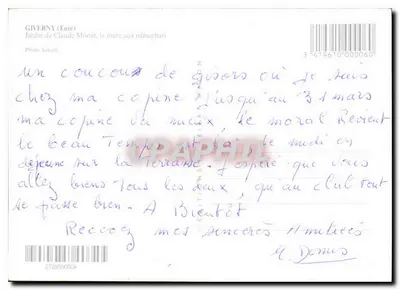 GIVERNY (Eure)
Jardin de Claude Monet, la mare aux nénuphars
3 479610 000060
un coucou de gisors où je suis
chez ma copine jusqu'au 31 mars
ma copine va mieux, le moral Revient
le beau Temps est là, le midi on
dejeune sur la Terrasse, J'espère que vous
allez biens Tous les deux, qu'au club tout
se passe bien - A Bientôt
Recevez mes sincères Amitiées